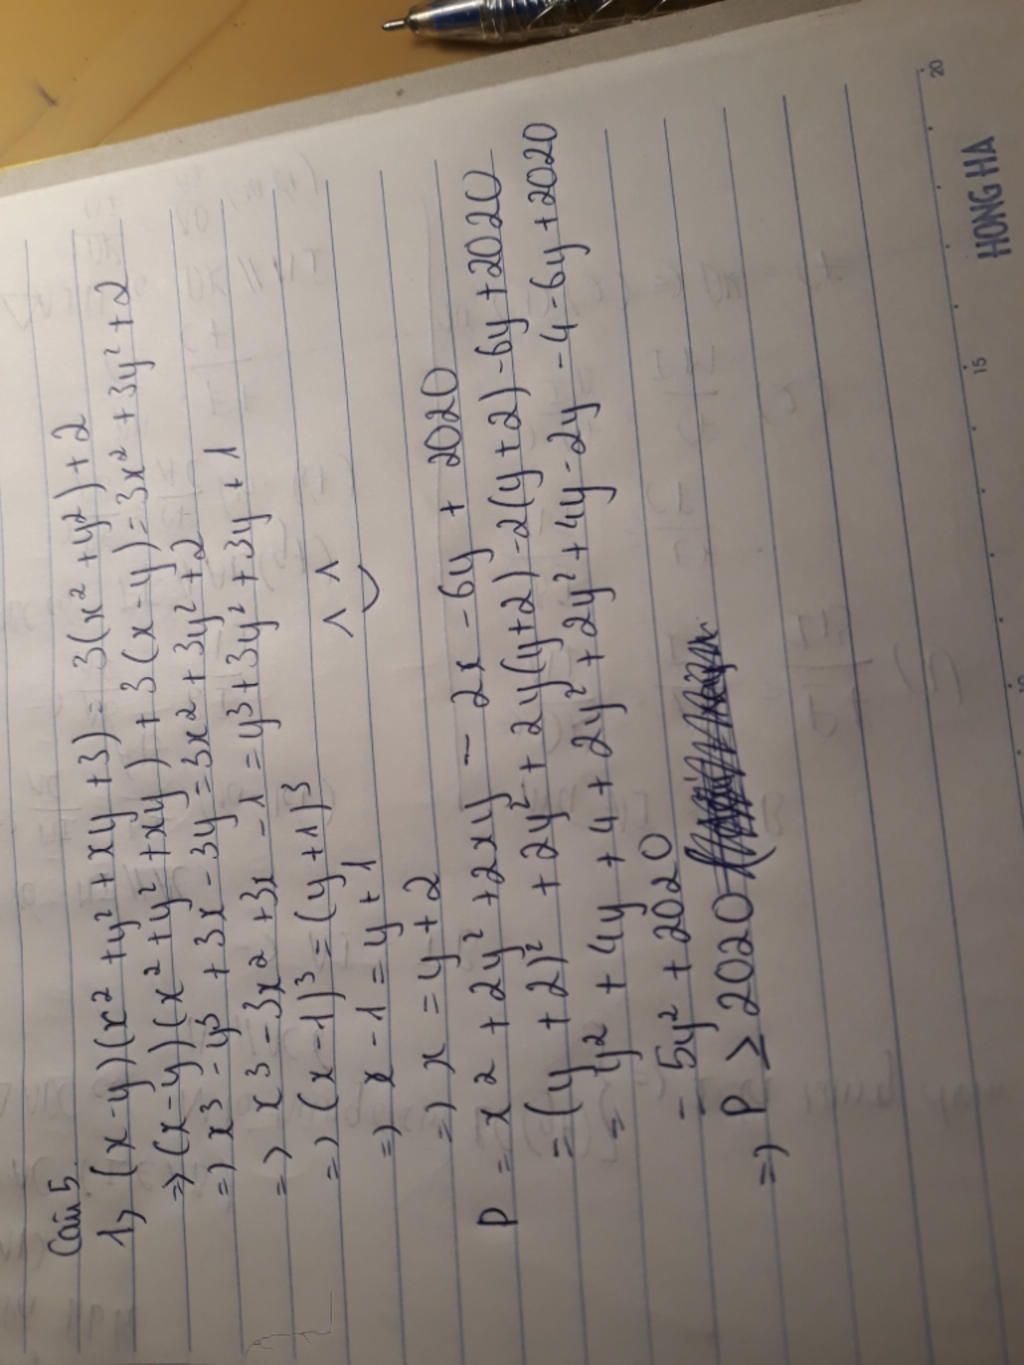 Câu 5
1, (x-y)(x² + y² + xy + 3) = 3(x² + y²) + 2
=> (x-y)(x² + y² + xy) + 3(x-y) = 3x² + 3y² + 2
=> x³ - y³ + 3x - 3y = 3x² + 3y² + 2
=> x³ - 3x² + 3x - 1 = y³ + 3y² + 3y + 1
=> (x-1)³ = (y+1)³
=> x - 1 = y + 1
=> x = y + 2
P = x² + 2y² + 2xy - 2x - 6y + 2020
= (y + 2)² + 2y² + 2y(y+2) - 2(y+2) - 6y + 2020
= y² + 4y + 4 + 2y² + 2y² + 4y - 2y - 4 - 6y + 2020
= 5y² + 2020
=> P ≥ 2020
HONG HA
15
20